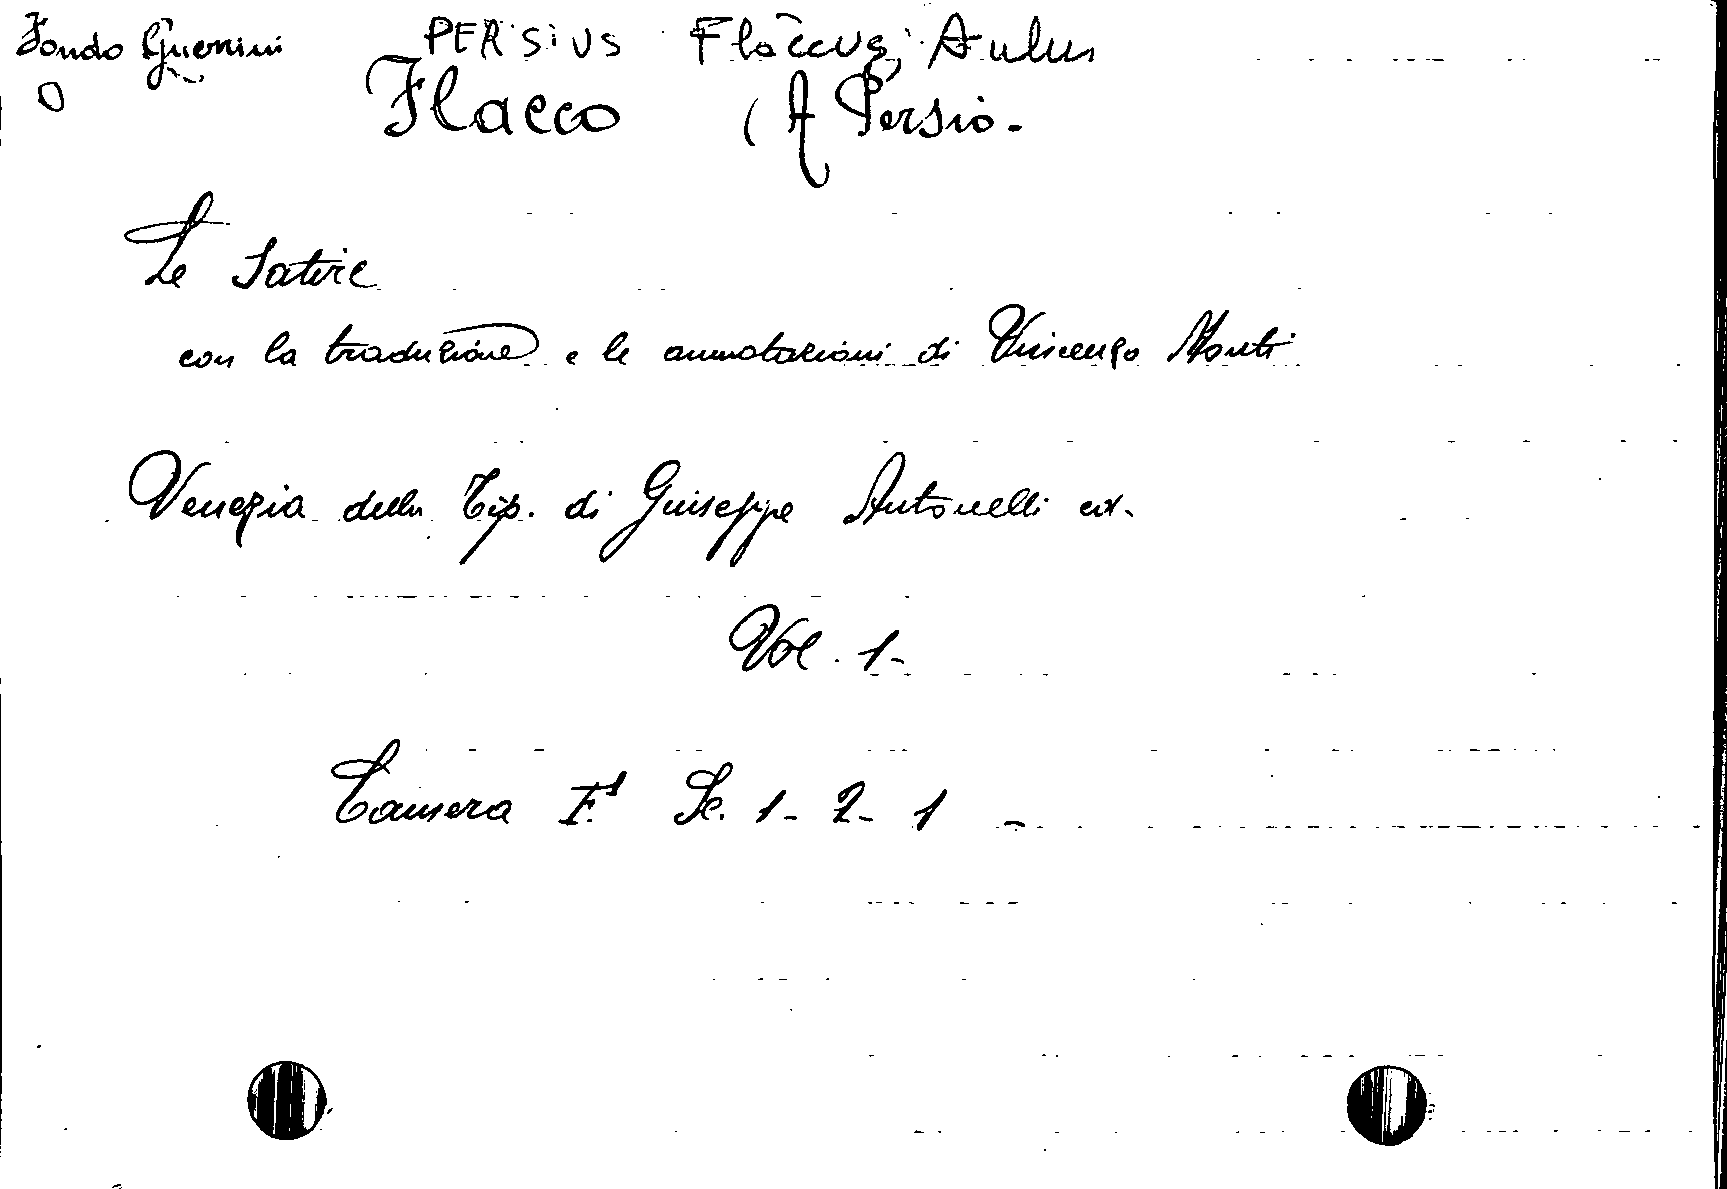 Fondo Guerrini PERSIUS Flaccus, Aulus
Flacco (A Persio.
Le Satire
con la traduzione e le annotazioni di Vincenzo Monti
Venezia della Tip. di Giuseppe Antonelli ed.
Vol. 1-
Camera F.1 Sc. 1- 2- 1 -